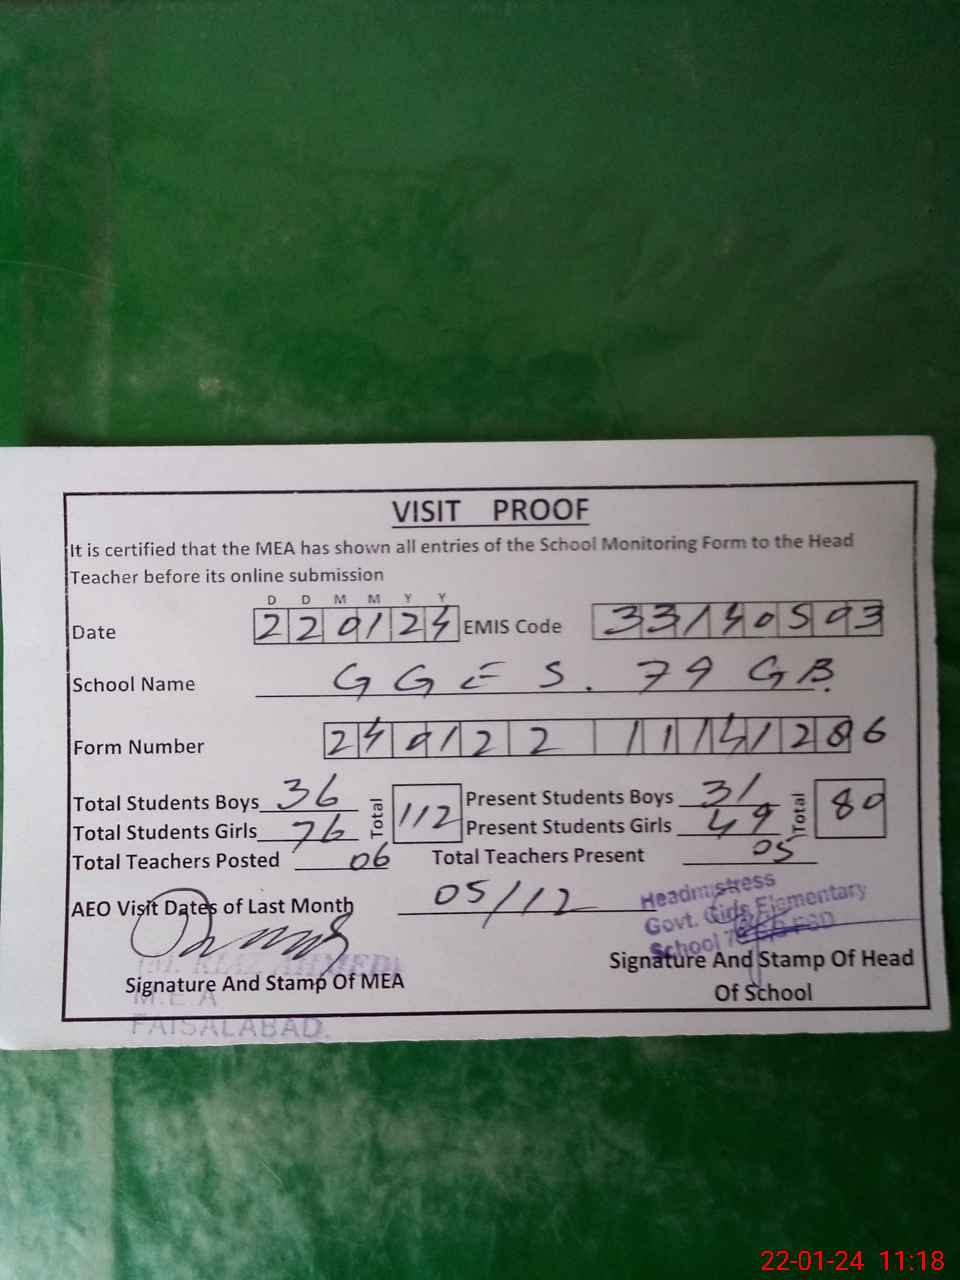 VISIT PROOF
It is certified that the MEA has shown all entries of the School Monitoring Form to the Head
Teacher before its online submission
D D M M Y Y
Date 220124 EMIS Code 33140503
School Name GGES. 79 GB.
Form Number 240122 11141286
Total Students Boys 36 Total 112 Present Students Boys 31 Total 80
Total Students Girls 76 Present Students Girls 49
Total Teachers Posted 06 Total Teachers Present 05
AEO Visit Dates of Last Month 05/12
Headmistress
Govt. Girls Elementary
School FSD
Signature And Stamp Of MEA
Signature And Stamp Of Head
Of School
M.E.A
FAISALABAD.
22-01-24 11:18